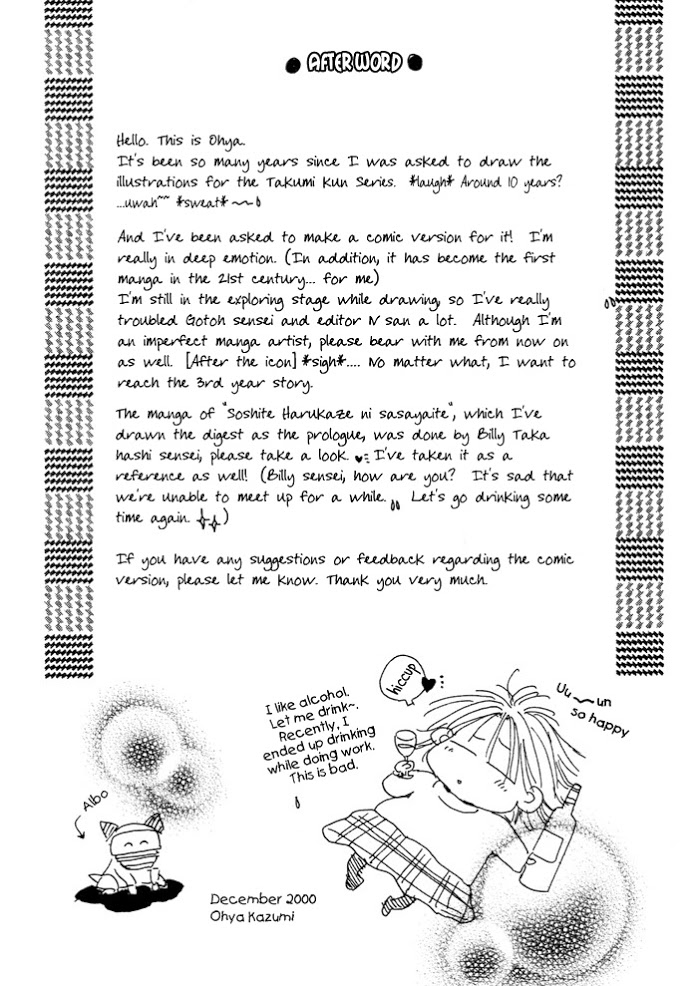 AFTER WORD
Hello. This is Ohya.
It's been so many years since I was asked to draw the
illustrations for the Takumi Kun Series. *laugh* Around 10 years?
...uwah~~ *sweat*~~
And I've been asked to make a comic version for it! I'm
really in deep emotion. (In addition, it has become the first
manga in the 21st century... for me)
I'm still in the exploring stage while drawing, so I've really
troubled Gotoh sensei and editor N san a lot. Although I'm
an imperfect manga artist, please bear with me from now on
as well. [After the icon] *sigh*.... No matter what, I want to
reach the 3rd year story.
The manga of "Soshite Harukaze ni sasayaite", which I've
drawn the digest as the prologue, was done by Billy Taka
hashi sensei, please take a look. ♥ I've taken it as a
reference as well! (Billy sensei, how are you? It's sad that
we're unable to meet up for a while. Let's go drinking some
time again. )
If you have any suggestions or feedback regarding the comic
version, please let me know. Thank you very much.
hiccup
♥...
I like alcohol.
Let me drink~.
Recently, I
ended up drinking
while doing work.
This is bad.
Uu~un
so happy
Albo
December 2000
Ohya Kazumi